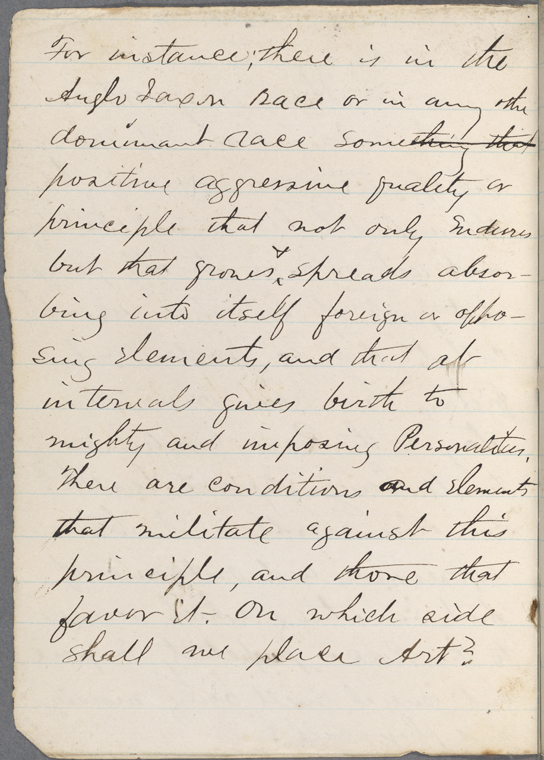 For instance, there is in the
Anglo Saxon race or in any other
dominant race something that
positive aggressive quality or
principle that not only Endures
but that grows & spreads absor-
bing into itself foreign or oppo-
sing Elements, and that at
intervals gives birth to
mighty and imposing Personalities.
There are conditions and Elements
that militate against this
principle, and those that
favor it. On which side
shall we place Art?